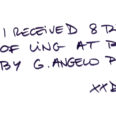 I RECEIVED 8
OF LING AT
BY G. ANGELO
XXD